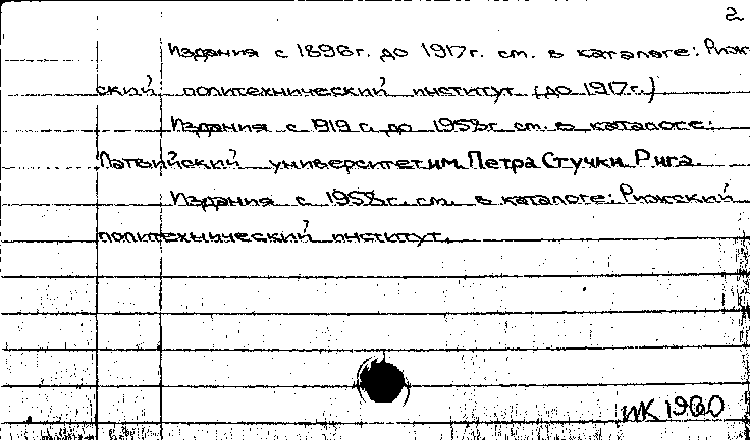 2
Издания с 1896г. до 1917г. см. в каталоге: Риж
ский политехнический институт (до 1917г.)
Издания с 1919 г. до 1958г см. в каталоге:
Латвийский университет им. Петра Стучки. Рига.
Издания с 1958г. см. в каталоге: Рижский
политехнический институт.
ИК 1960